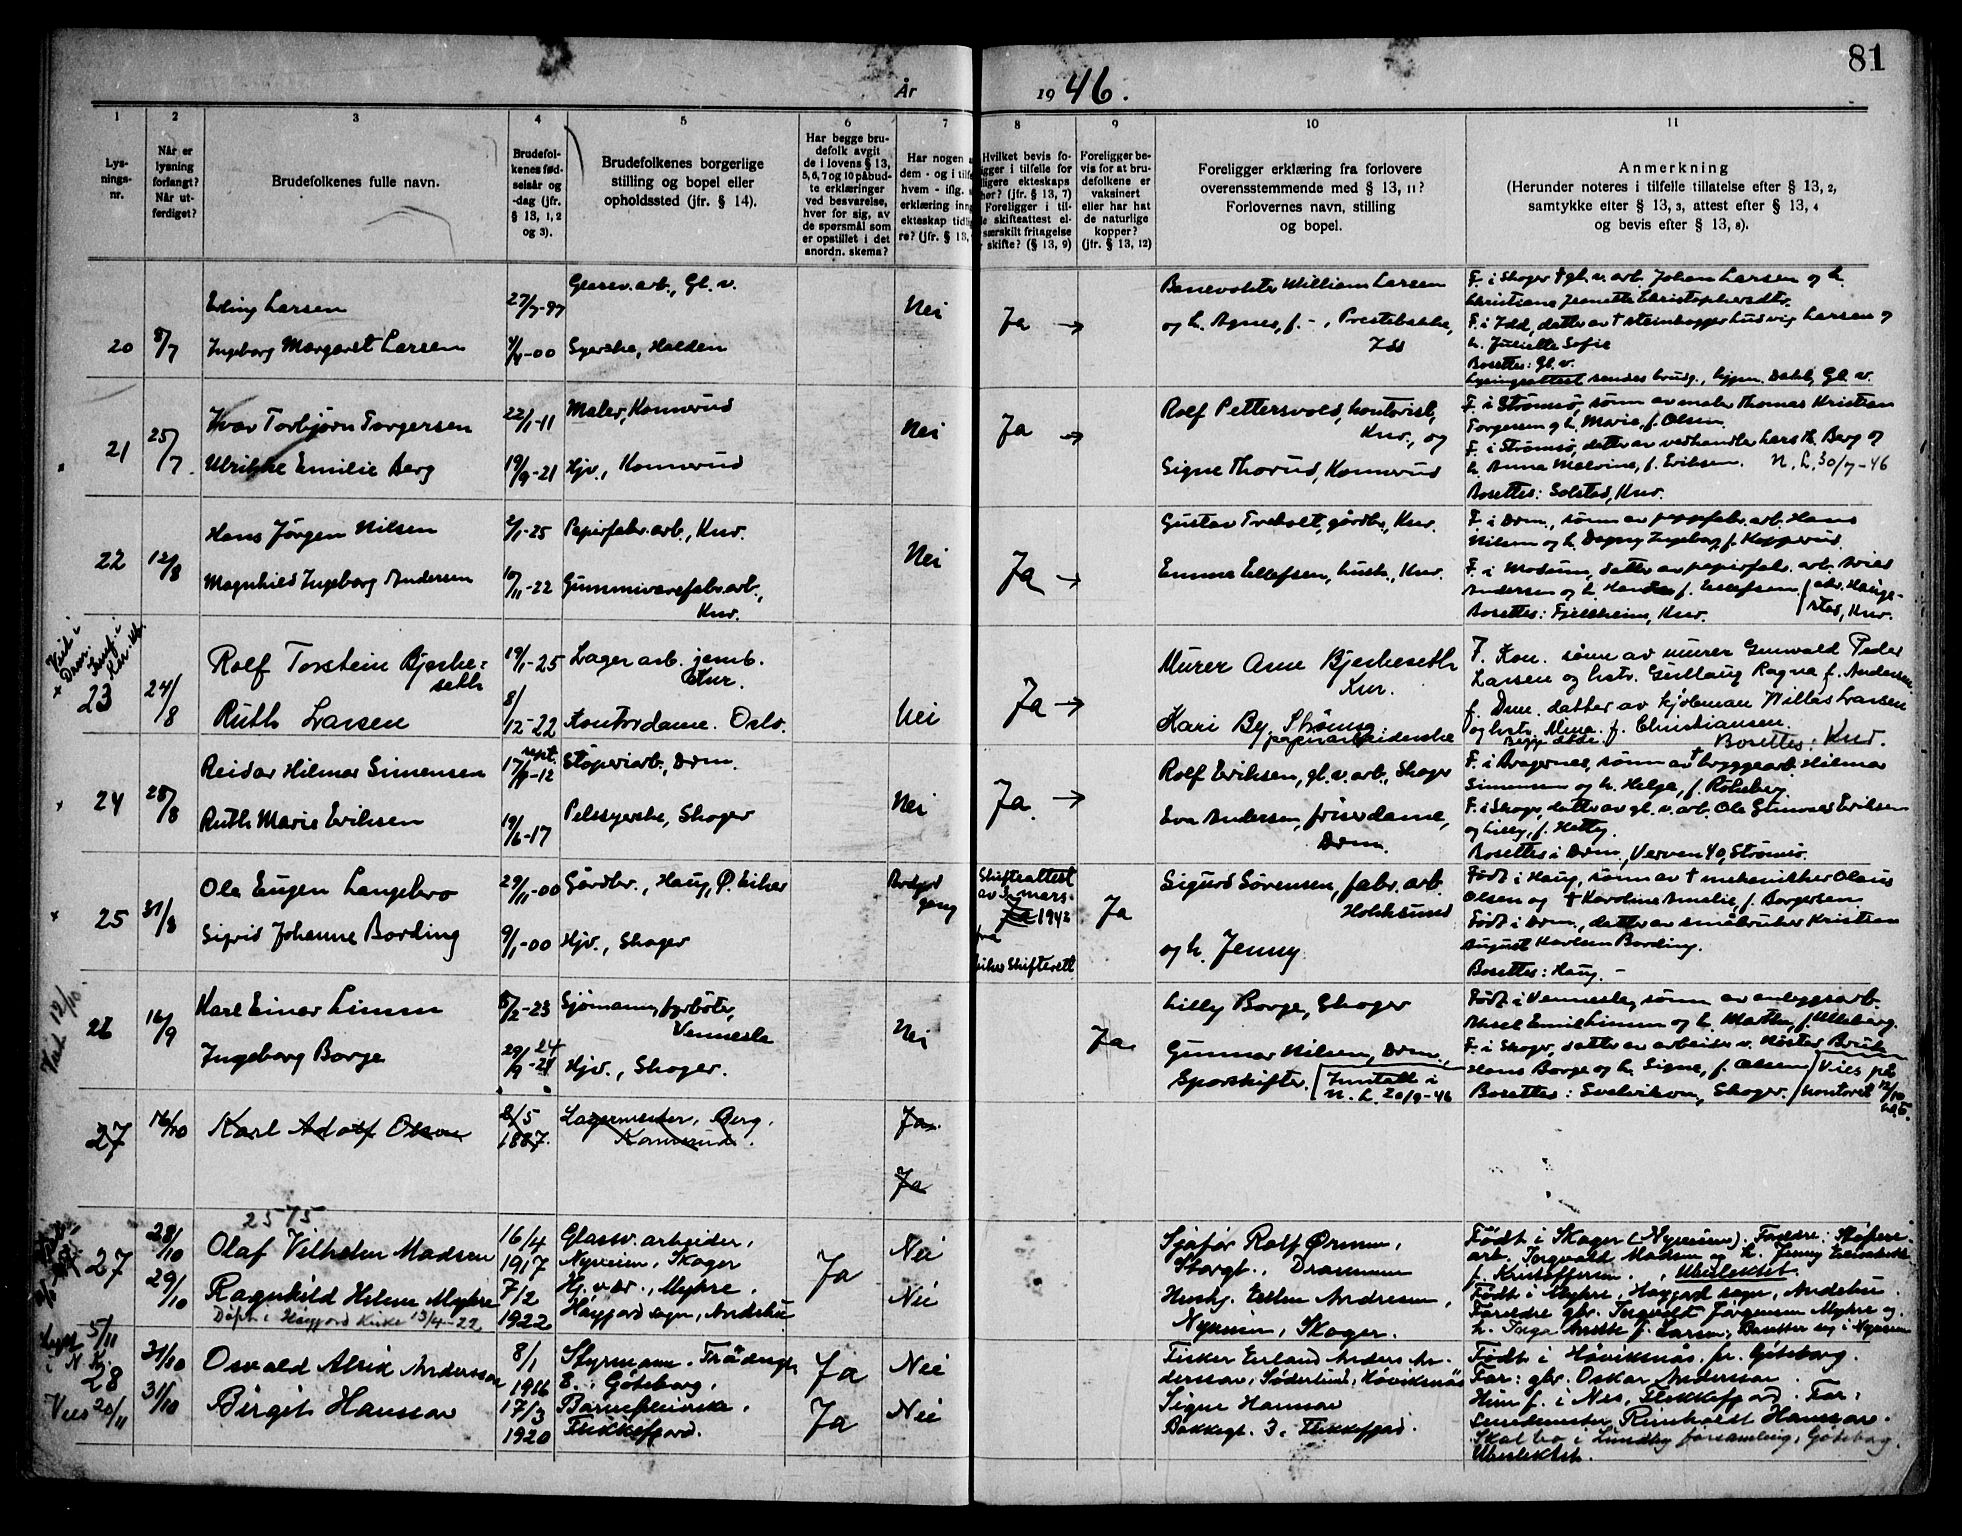 81
År 1946.
1
2
3
4
5
6
7
8
9
10
11
Lys-
nings-
nr.
Når er
lysning
forlangt?
Når ut-
ferdiget?
Brudefolkenes fulle navn.
Brudefol-
kenes fød-
selsår og
-dag (jfr.
§ 13, 1, 2
og 3).
Brudefolkenes borgerlige
stilling og bopel eller
opholdssted (jfr. § 14).
Har begge bru-
defolk avgit
de i lovens § 13,
5, 6, 7 og 10 påbud-
te erklæringer
ved besvarelse,
hver for sig, av
de spørsmål som
er opstillet i det
anordn. skema?
Har nogen a
dem - og i tilfe
hvem - iflg. s
erklæring inng
ekteskap tidlig
re? (jfr. § 13,
Hvilket bevis fo-
ligger i tilfelle for
ligere ekteskaps
hør? (jfr. § 13, 7)
Foreligger i til-
le skifteattest el-
særskilt fritagelse
skifte? (§ 13, 9)
Foreligger be-
vis for at bru-
defolkene er
vaksinert
eller har hat
de naturlige
kopper?
(jfr. § 13, 12)
Foreligger erklæring fra forlovere
overensstemmende med § 13, 11?
Forlovernes navn, stilling
og bopel.
Anmerkning
(Herunder noteres i tilfelle tillatelse efter § 13, 2,
samtykke efter § 13, 3, attest efter § 13, 4
og bevis efter § 13, 8).
20
8/7
Erling Larsen
27/7-97
Glassv. arb., Gl. v.
Ingeborg Margaret Larsen
4/4-00
Syerske, Halden
Nei
Ja →
Banevokter William Larsen
og h. Agnes, f. -, Prestebakke,
Idd
F. i Skoger † gl. v. arb. Johan Larsen og h.
Christiane Jeanette Christophersdtr.
F. i Idd, datter av † steinhogger Ludvig Larsen og
h. Juliette Sofie
Bosettes: Gl. v.
Lysningsattest sendes brudg., Dahl, Gl. v.
21
25/7
Ivar Torbjørn Torgersen
22/1-11
Maler, Konnerud
Ulrikke Emilie Berg
19/9-21
Hjv., Konnerud
Nei
Ja →
Rolf Pettersvold, kontorist,
Knr., og
Signe Thorud, Konnerud
F. i Strømsø, sønn av maler Thomas Kristian
Torgersen og h. Marie, f. Olsen
F. i Strømsø, datter av vedhandler Lars Th. Berg og
h. Anna Malvine, f. Eriksen. N. L. 30/7-46
Bosettes: Solstad, Knr.
22
12/8
Hans Jørgen Nilsen
2/1-25
Papirfabr. arb., Knr.
Magnhild Ingeborg Andersen
10/11-22
Gummivarefabr. arb.,
Knr.
Nei
Ja →
Gustav Treholt, gårdbr., Knr.
Emma Ellefsen, hush., Knr.
F. i Drm., sønn av pappfabr. arb. Hans
Nilsen og h. Dagny Ingeborg f. Kopperud.
F. i Modum, datter av papirfabr. arb.
Andersen og h. f. Ellefsen
Bosettes: Fjellheim, Knr.
Viet i
Drm.
+ 23
24/8
Rolf Torstein Bjerke-
seth
19/1-25
Lager arb. jernb.
Knr.
Ruth Larsen
8/12-22
Kontordame. Oslo.
Nei
Ja →
Murer Arne Bjerkeseth
Knr.
Kari By, Strømsø
papirarbeiderske
F. Kon. sønn av murer Gunvald Peder
Larsen og hstr. Gullaug Ragna f. Andersen.
f. Drm. datter av kjølemann Larsen
og hstr. Mina f. Christiansen.
Bosettes: Knr.
24
28/8
Reidar Hilmar Simensen
sept.
17/9-12
Støperiarb., Drm.
Ruth Marie Eriksen
19/6-17
Pelssyerske, Skoger
Nei
Ja. →
Rolf Eriksen, gl. v. arb., Skoger
Eva Andersen, frisérdame,
Drm.
F. i Bragernes, sønn av † bryggearb. Hilmar
Simensen og h. Helga, f. Röhsberg.
F. i Skoger, datter av gl. v. arb. Ole Gunvald Eriksen
og Lilly, f. Hetty.
Bosettes i Drm., Verven 40, Strømsø.
25
31/8
Ole Eugen Langebro
29/11-00
Gårdbr., Haug, Ø. Eiker
Sigrid Johanne Bording
9/1-00
Hjv., Skoger
Brudgom
gang
Skifteattest
av mars
1942
fra
Eiker Skifterett
Ja
Sigurd Sørensen, fabr. arb.
Hokksund
og h. Jenny
Født i Haug, sønn av † mekaniker Olaus
Olsen og † Karoline Amalie, f. Borgersen
Født i Drm., datter av småbruker Kristian
August Karlsen Bording.
Bosettes: Haug. -
Viet 12/10
26
16/9
Karl Einar Limm
8/2-23
Sjømann, fyrbøter,
Vennesla
Ingeborg Borge
29/9-24
Hjv., Skoger.
Nei
Ja
Lilly Borge, Skoger
Gunnar Nilsen, Drm.,
Sporskifter.
Inntatt i
N. L. 20/9-46
Født i Vennesla, sønn av anleggsarb.
Aksel Emil Limm og h. Marthe, f. Ulleberg.
F. i Skoger, datter av arbeider v.
Hans Borge og h. Signe, f. Olsen
Bosettes: Svelvikvn., Skoger.
Vies på
kontoret 12/10
27
16/10
Karl Adolf Olsen
2/5
1887.
Lagermester, Berg,
Konnerud.
Ja
Ja
2575
27
28/10
29/10
Olaf Vilhelm Madsen
16/4
1917
Glassv. arbeider,
Nyveien, Skoger
Ragnhild Helene Myhre
Døpt i Høyjord Kirke 13/4-22
7/2
1922
Hj. vær., Myhre,
Høyjord sogn, Andebu
Ja
Nei
Nei
Sjåfør Rolf Ørmen,
Storgt., Drammen
Hushj. Esther Andresen,
Nyveien, Skoger.
Født i Skoger (Nyveien). Foreldre: Støperi-
arb. Ingvald Madsen og h. Jenny Elisabeth
f. Kristoffersen. Ubeslektet.
Født i Myhre, Høyjord sogn, Andebu.
Foreldre gbr. Ingvald Jørgensen Myhre og
h. Inga f. Larsen. Bosetter seg i Nyveien
Lyst 5/11
i N. K.
28
Vies 20/11
31/10
31/10
Osvald Alrik Andersson
8/1
1916
Styrmann.
Göteborg.
Birgit Hanssen
17/3
1920
Barnepleierske.
Flekkefjord.
Ja
Ja
Nei
Nei
Fisker Erland Anders An-
dersson, Söderlund, Höviksnäs
Signe Hanssen
Bakkegt. 3, Flekkefjord.
Født i Höviksnäs, pr. Göteborg.
Far: gbr. Oskar Andersson
Hun f. i Nes, Flekkefjord. Far:
Reinholdt Hanssen.
Skal bo i Lundby församling, Göteborg.
Ubeslektet.